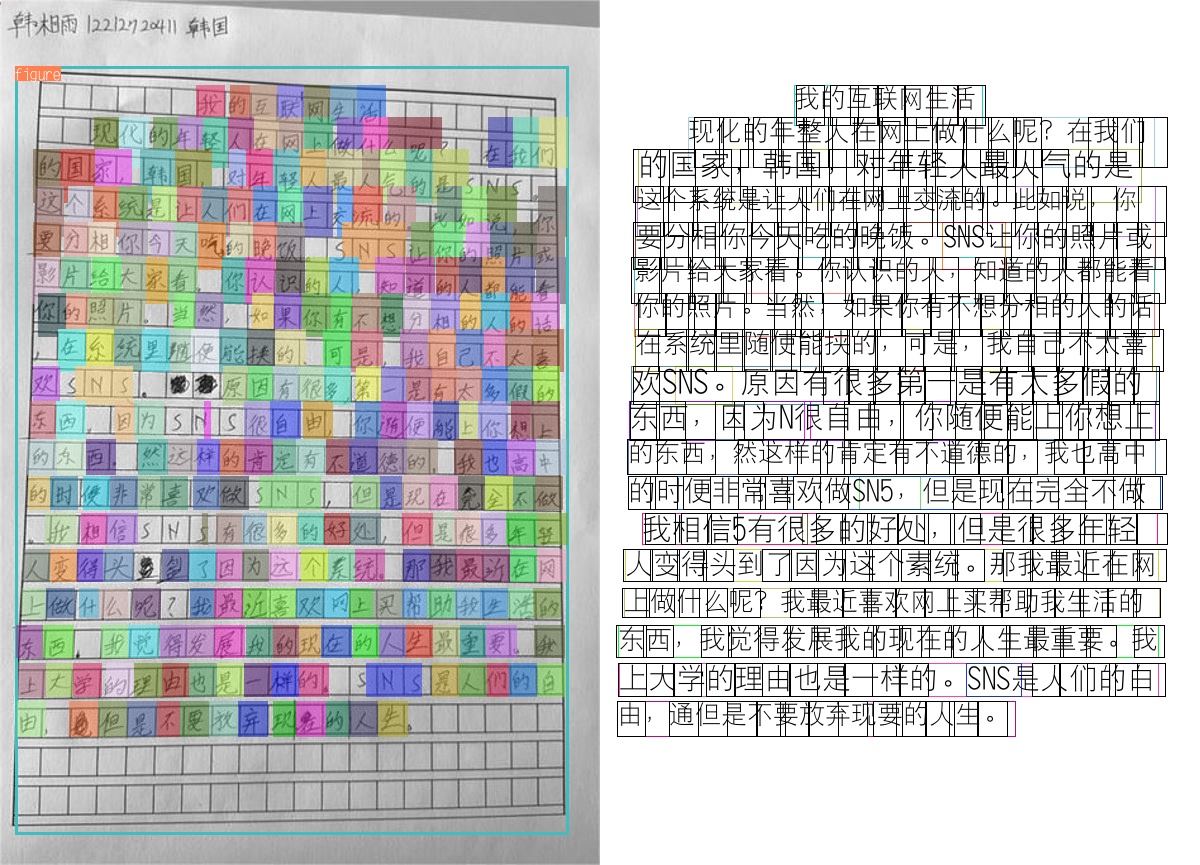 韩相雨 1221272041 韩国
figure
我的互联网生活
现化的年轻人在网上做什么呢? 在我们
的国家,韩国,对年轻人最人气的是SNS.
这个系统是让人们在网上交流的.比如说,你
要分相你今天吃的晚饭. SNS让你的照片或
影片给大家看.你认识的人,知道的人都能看
你的照片.当然,如果你有不想分相的人的话
,在系统里随便能挟的.可是,我自己不太喜
欢SNS. 原因有很多,第一是有太多假的
东西.因为SNS很自由,你随便能上你想上
的东西.然这样的肯定有不道德的.我也高中
的时便非常喜欢做SNS,但是现在完全不做
.我相信SNS有很多的好处,但是很多年轻
人变得头到了因为这个系统.那我最近在网
上做什么呢?我最近喜欢网上买帮助我生活的
东西.我觉得发展我的现在的人生最重要.我
上大学的理由也是一样的. SNS是人们的自
由, 但是不要放弃现在的人生.
我的互联网生活
现化的年整人在网上做什么呢?在我们
的国家,韩国,对年轻人最人气的是
这个系统是让人们在网上交流的。此如说,你
要分相你今天吃的晚饭。SNS让你的照片或
影片给大家看。你认识的人,知道的人都能看
你的照片。当然,如果你有不想分相的人的话
在系统里随便能挟的,可是,我自己不太喜
欢SNS。原因有很多第一是有太多假的
东西,因为N很自由,你随便能上你想上
的东西,然这样的肯定有不道德的,我也高中
的时便非常喜欢做SN5,但是现在完全不做
我相信5有很多的好处,但是很多年轻
人变得头到了因为这个素统。那我最近在网
上做什么呢?我最近喜欢网上买帮助我生活的
东西,我觉得发展我的现在的人生最重要。我
上大学的理由也是一样的。SNS是人们的自
由,通但是不要放弃现要的人生。